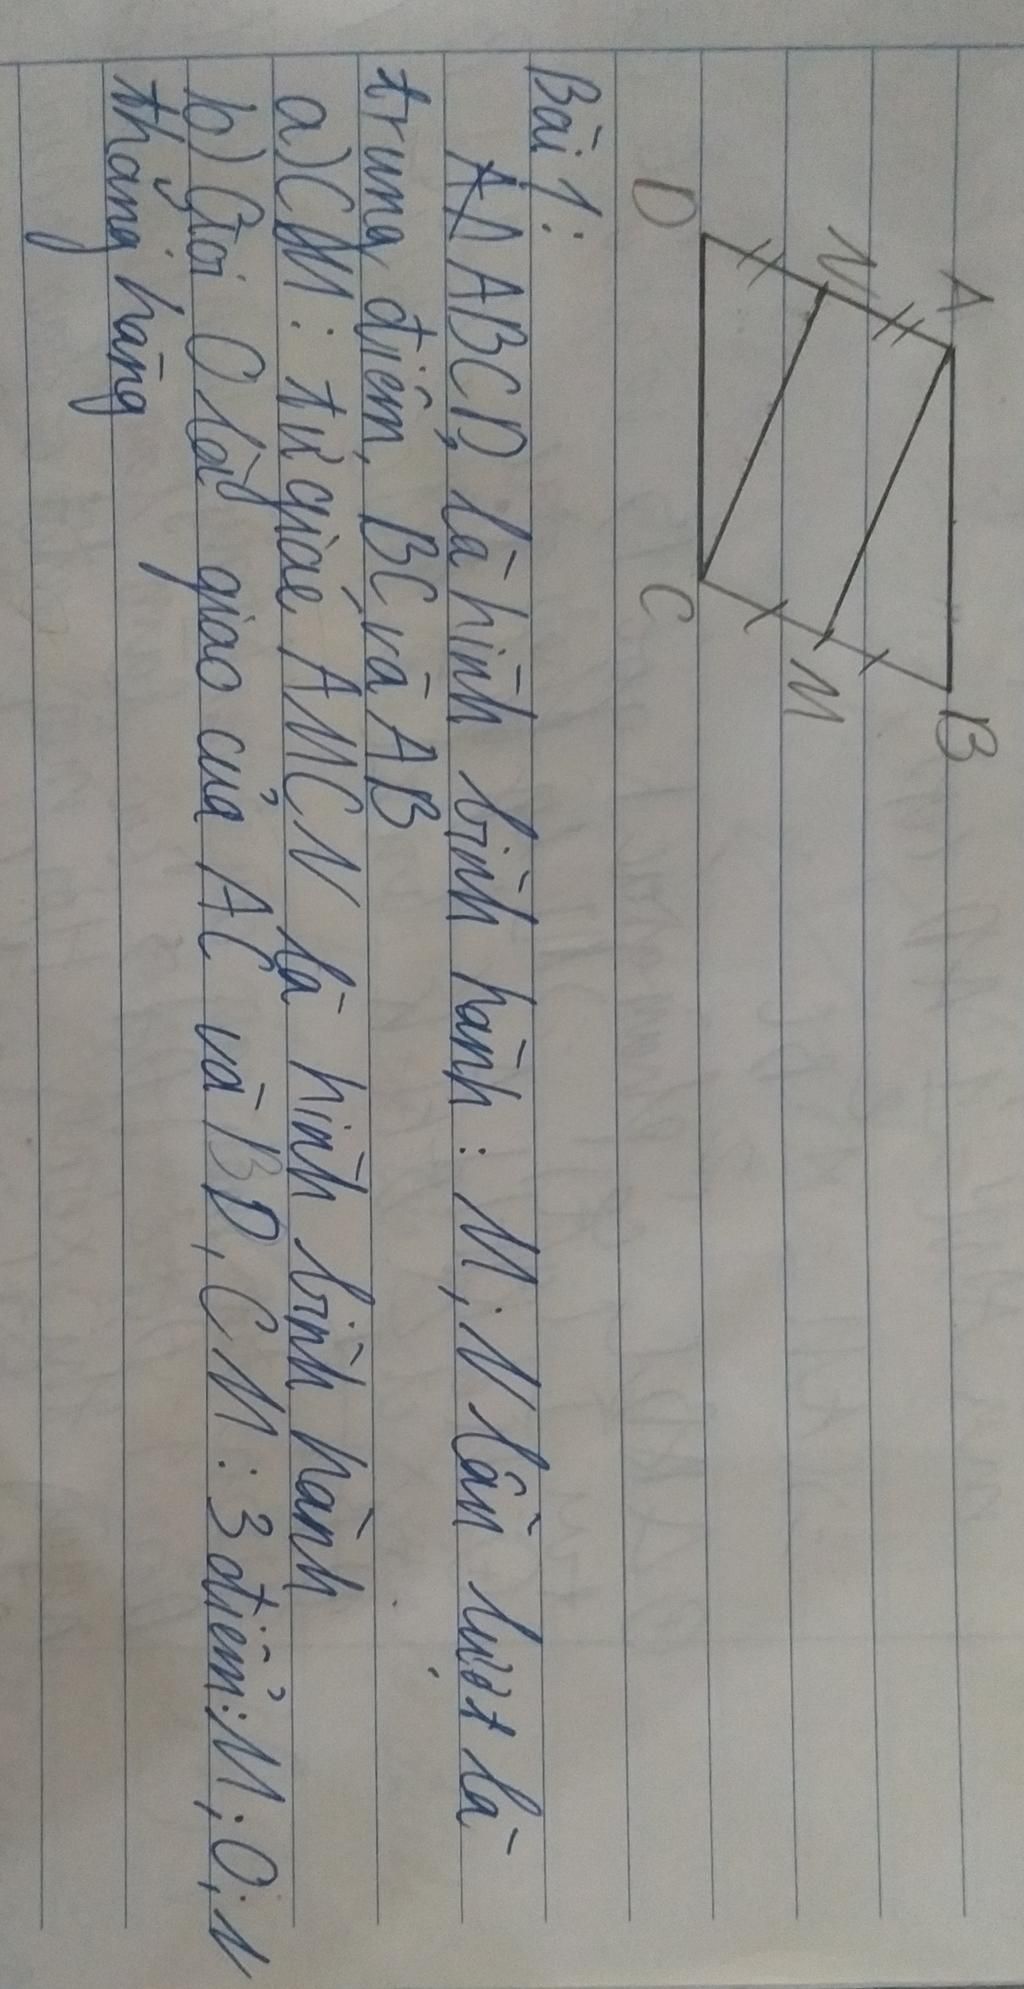 A B
N M
D C
Bài 1:
ABCD là hình bình hành: M; N lần lượt là
trung điểm, BC và AB
a) CM: tứ giác AMCN là hình bình hành
b) Gọi O là giao của AC và BD, CM: 3 điểm: M; O; N
thẳng hàng